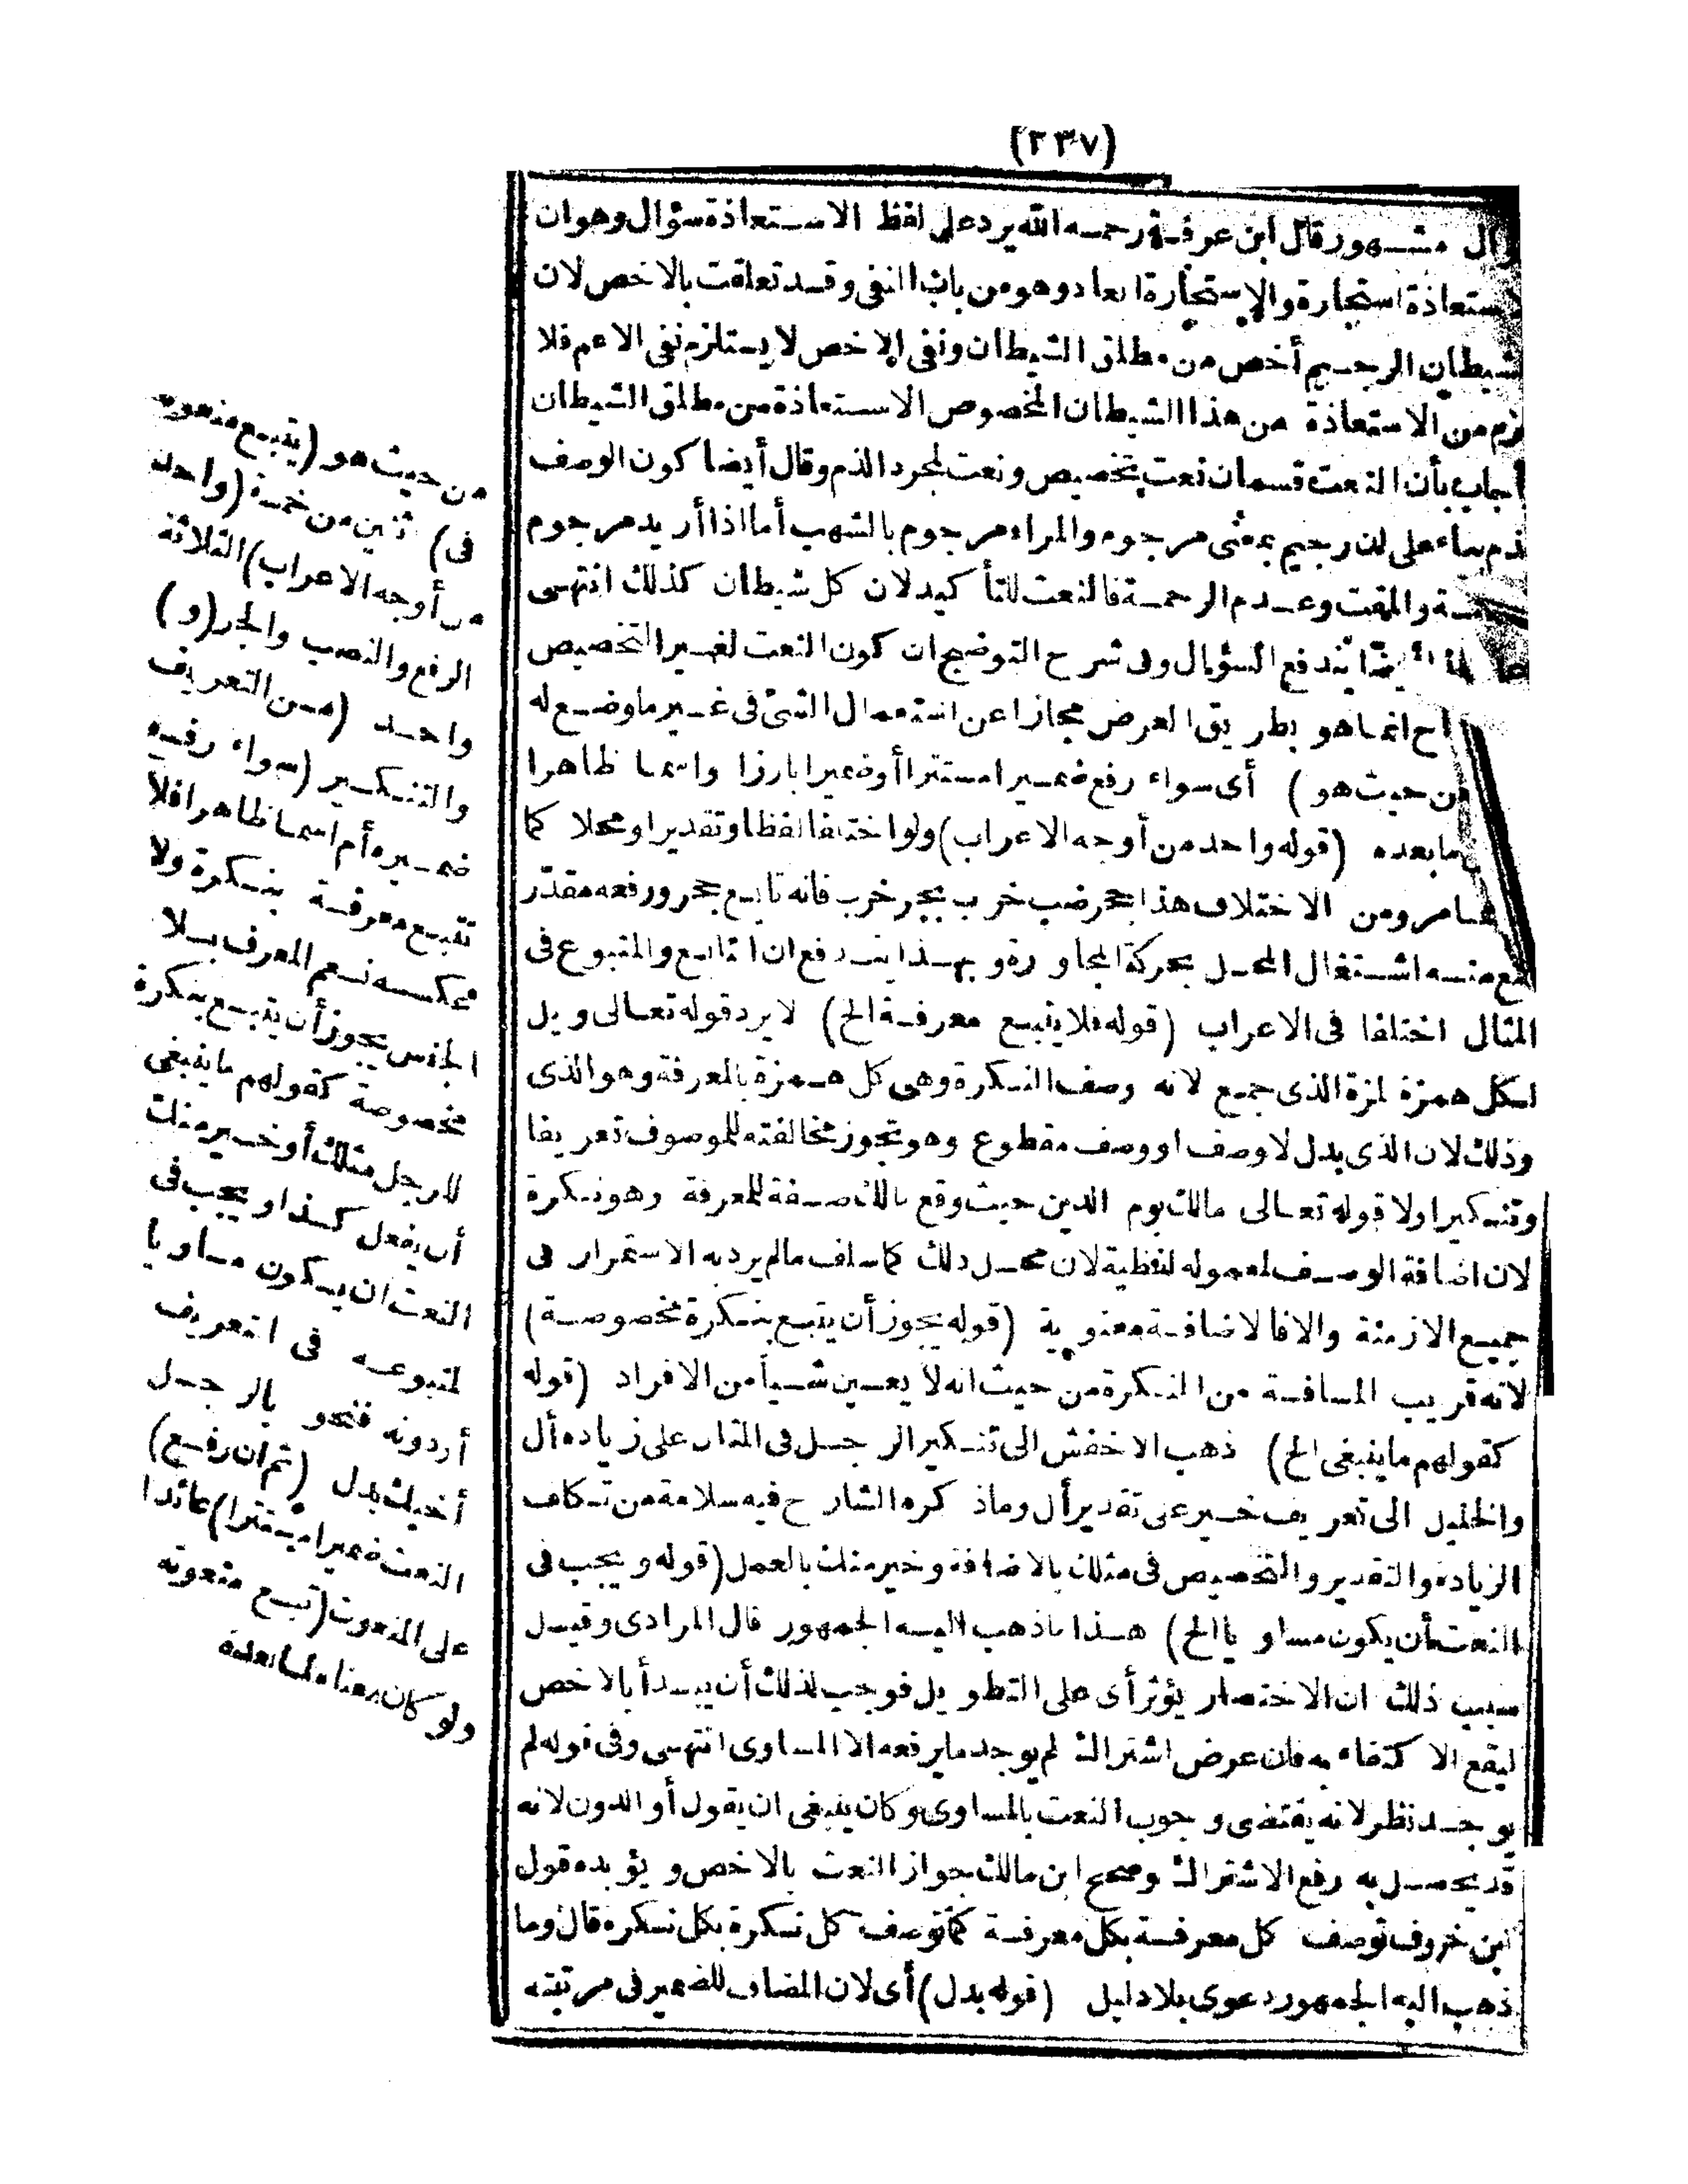 (٢٣٧)
مشهور قال ابن عرفة رحمه الله يرد على لفظ الاستعاذة سؤال وهو ان
استجارة والاستجارة ابعاد وهو من باب النفى وقد تعلقت بالاخص لان
الرجيم أخص من مطلق الشيطان ونفى الاخص لا يستلزم نفى الاعم فلا
من الاستعاذة من هذا الشيطان المخصوص الاستعاذة من مطلق الشيطان
بأن النعت قسمان نعت تخصيص ونعت لمجرد الذم وقال أيضا كون الوصف
بناء على ان رجيم بمعنى مرجوم والمراد مرجوم بالشهب أما اذا أريد مرجوم
والمقت وعدم الرحمة فالنعت للتأكيد لان كل شيطان كذلك انتهى
يندفع السؤال وفى شرح التوضيح ان كون النعت لغير التخصيص
انما هو بطريق العرض مجازا عن استعمال الشئ فى غير ما وضع له
من حيث هو) أى سواء رفع ضميرا مستترا أو ضميرا بارزا واسما ظاهرا
ما بعده (قوله واحد من أوجه الاعراب) ولو اختلفا لفظا وتقديرا ومحلا كما
مر ومن الاختلاف هذا جحر ضب خرب بجر خرب فانه تابع لجحر ورفعه مقدر
منع منه اشتغال المحل بحركة المجاورة وبهذا يندفع ان التابع والمتبوع فى
المثال اختلفا فى الاعراب (قوله فلا يتبع معرفة الخ) لا يرد قوله تعالى ويل
لكل همزة لمزة الذى جمع لانه وصف النكرة وهى كل همزة بالمعرفة وهو الذى
وذلك لان الذى بدل لا وصف او وصف مقطوع وهو تجوز مخالفته للموصوف تعريفا
وتنكيرا ولا قوله تعالى مالك يوم الدين حيث وقع مالك صفة للمعرفة وهو نكرة
لان اضافة الوصف لمعموله لفظية لان محل ذلك كما سلف مالم يرد به الاستمرار فى
جميع الازمنة والا فالاضافة معنوية (قوله يجوز أن يتبع بنكرة مخصوصة)
لانه قريب المسافة من النكرة من حيث انه لا يعين شيأ من الافراد (قوله
كقولهم ما ينبغى الخ) ذهب الاخفش الى تنكير الرجل فى المثال على زيادة أل
والخليل الى تعريف خير على تقدير أل وما ذكره الشارح فيه سلامة من تكلف
الزيادة والتقدير والتخصيص فى مثلك بالاضافة وخير منك بالعمل (قوله ويجب فى
النعت أن يكون مساويا الخ) هذا ما ذهب اليه الجمهور قال المرادى وقيل
سبب ذلك ان الاختصار يؤثر أى على التطويل فوجب لذلك أن يبدأ بالاخص
ليقع الاكتفاء به فان عرض اشتراك لم يوجد ما يرفعه الا المساوى انتهى وفى قوله لم
يوجد نظر لانه يقتضى وجوب النعت بالمساوى وكان ينبغى ان يقول أو الدون لانه
قد يحصل به رفع الاشتراك وصحح ابن مالك جواز النعت بالاخص ويؤيده قول
ابن خروف توصف كل معرفة بكل معرفة كما توصف كل نكرة بكل نكرة قال وما
ذهب اليه الجمهور دعوى بلا دليل (قوله بدل) أى لان المضاف للضمير فى مرتبته
من حيث هو (يتبع منعوته
فى) ثنين من خمسة (واحد
من أوجه الاعراب) الثلاثة
الرفع والنصب والجر (و)
واحد (من التعريف
والتنكير) سواء رفع
ضميره أم اسما ظاهرا فلا
تتبع معرفة بنكرة ولا
عكسه نعم المعرف بلا
الجنس يجوز أن يتبع بنكرة
مخصوصة كقولهم ما ينبغى
للرجل مثلك أو خير منك
أن يفعل كذا ويجب فى
النعت ان يكون مساويا
لمتبوعه فى التعريف
أو دونه فنحو بالرجل
أخيك بدل (ثم ان رفع)
النعت ضميرا مستترا) عائدا
على المنعوت (تبع منعوته
ولو كان معناه لما بعده